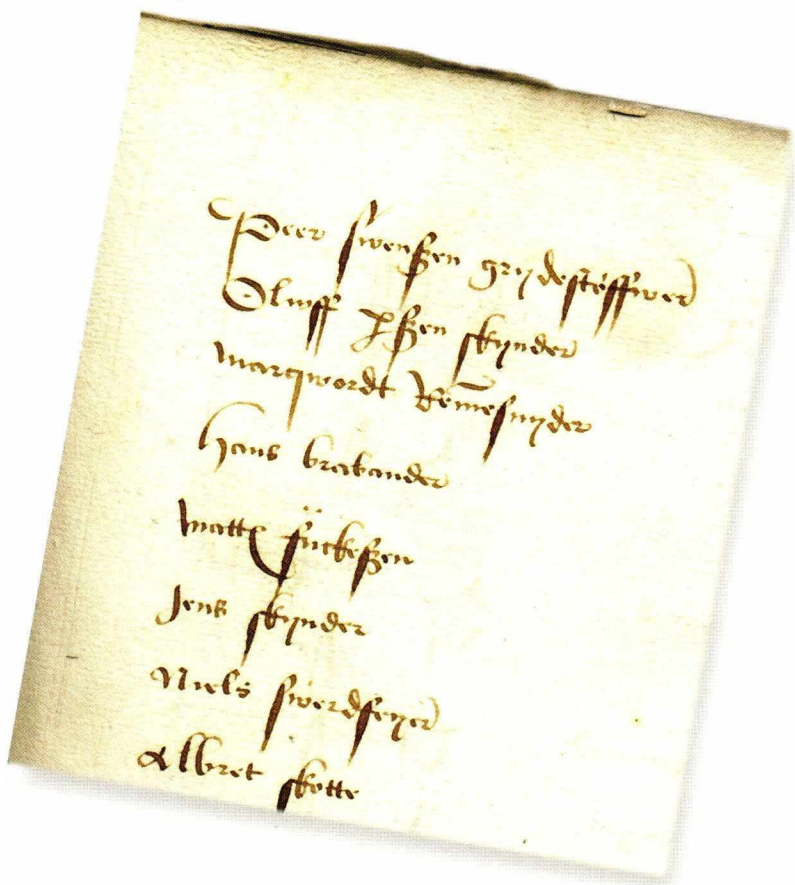 Peer swenßen grydestøffwer
Oluff pßen skynder
marqwordt Remesnyder
hans brabander
matt sückeßen
Jens skynder
Niels swerdfeyer
Albret skotte